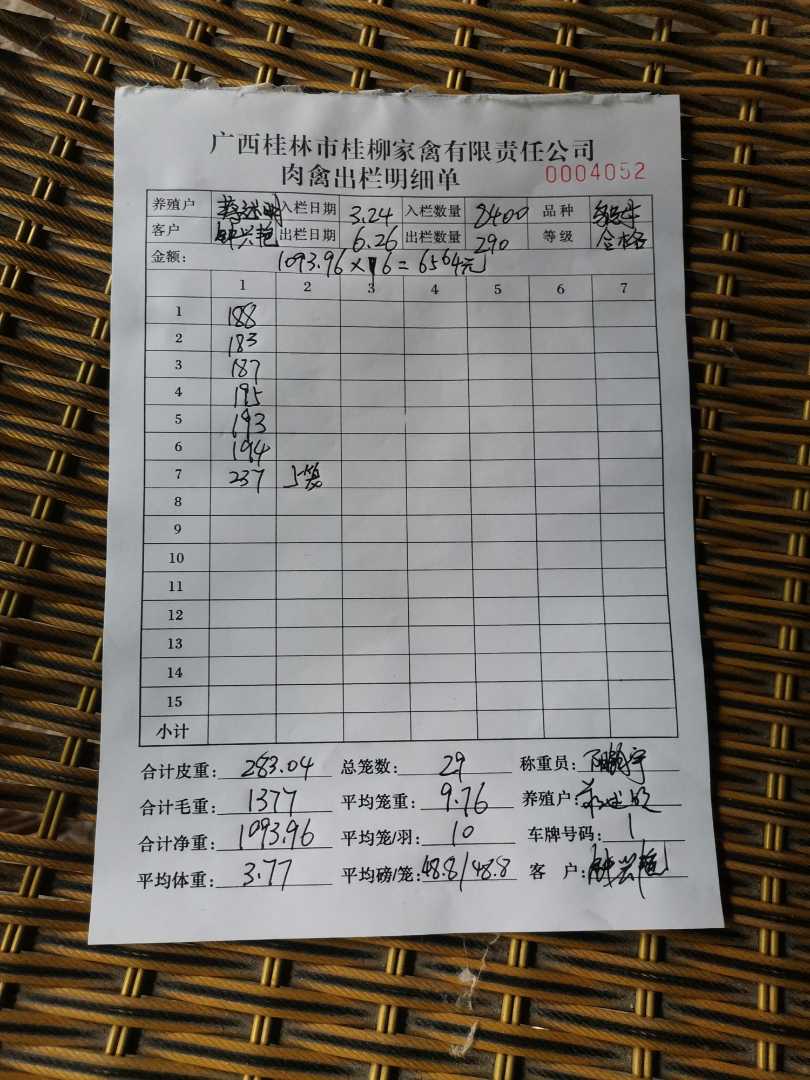 广西桂林市桂柳家禽有限责任公司
肉禽出栏明细单 0004052
养殖户 入栏日期 3.24 入栏数量 8400 品种
客户 钟兴艳 出栏日期 6.26 出栏数量 290 等级 合格
金额: 1093.96 × 6 = 6564元
1 2 3 4 5 6 7
1 188
2 183
3 187
4 195
5 193
6 194
7 237 5笼
8
9
10
11
12
13
14
15
小计
合计皮重: 283.04 总笼数: 29 称重员:
合计毛重: 1377 平均笼重: 9.76 养殖户:
合计净重: 1093.96 平均笼/羽: 10 车牌号码: 1
平均体重: 3.77 平均磅/笼: 48.8/48.8 客户: 钟兴艳